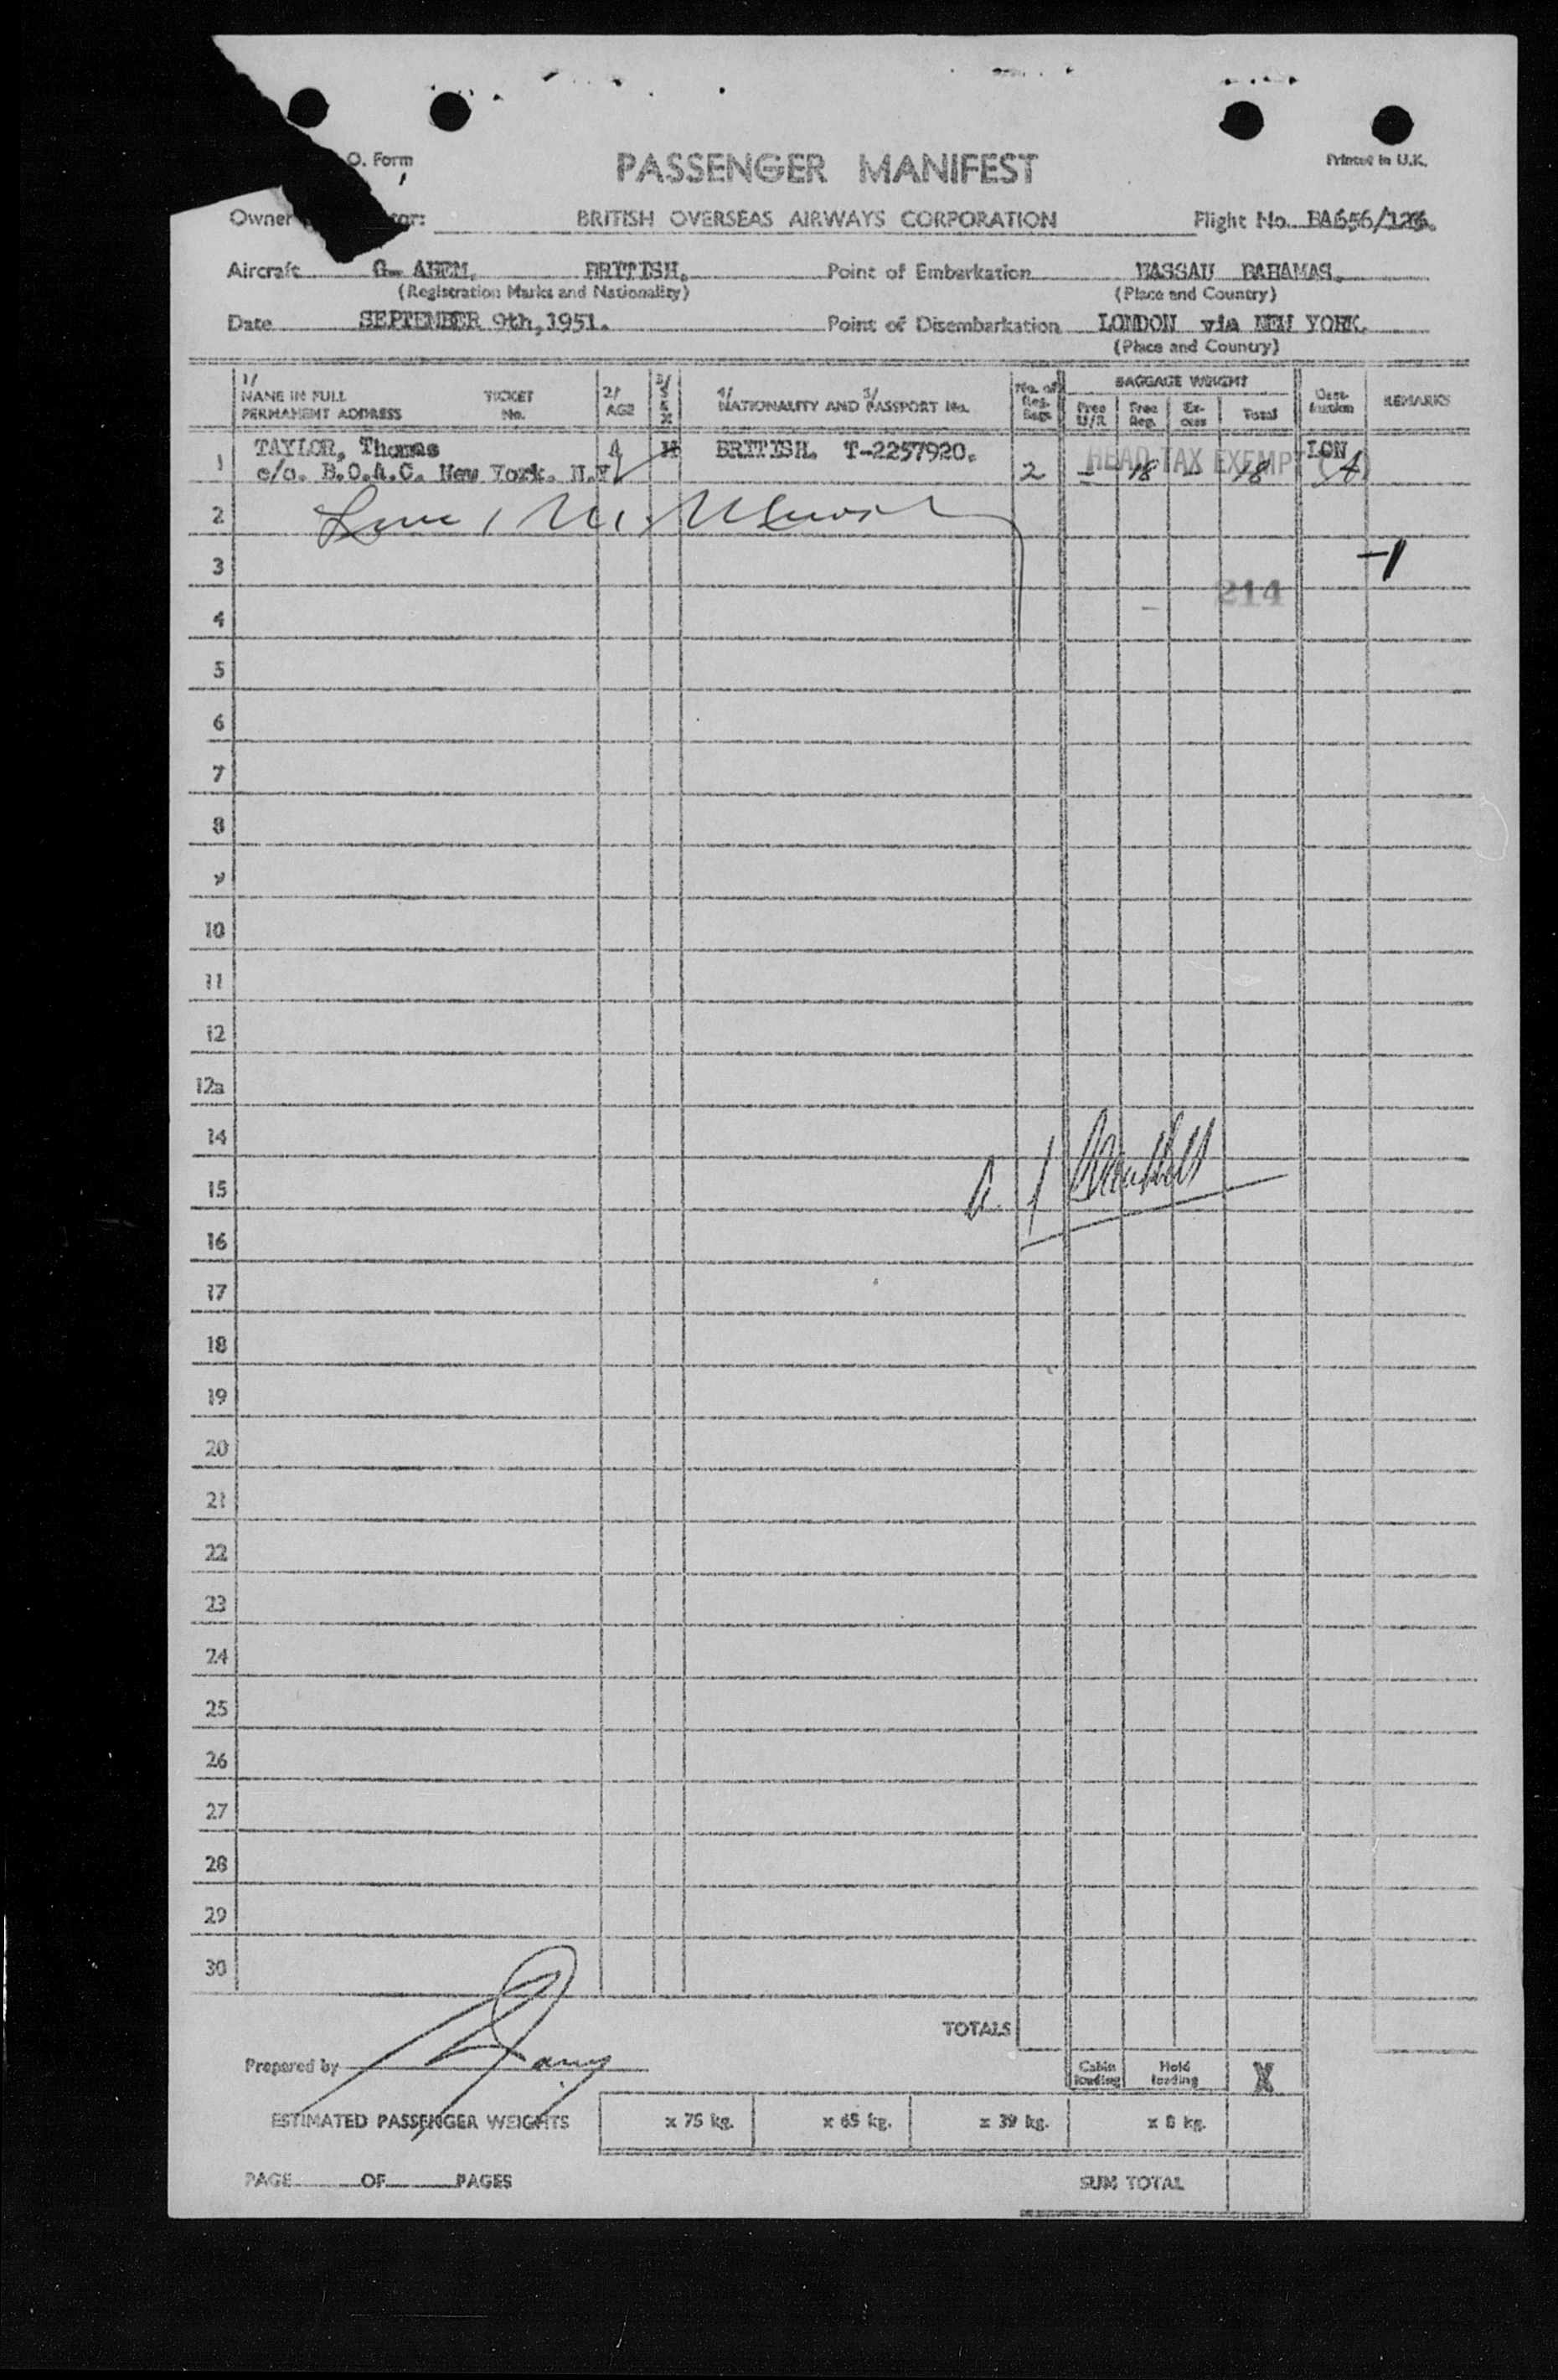 O. Form
PASSENGER MANIFEST
Printed in U.K.
Owner or: BRITISH OVERSEAS AIRWAYS CORPORATION Flight No. BA656/
Aircraft G- AHEM. BRITISH. Point of Embarkation NASSAU BAHAMAS.
(Registration Marks and Nationality) (Place and Country)
Date SEPTEMBER 9th, 1951. Point of Disembarkation LONDON via NEW YORK.
(Place and Country)
1/ NAME IN FULL PERMANENT ADDRESS TICKET No. 2/ AGE 3/ SEX 4/ 5/ NATIONALITY AND PASSPORT No. No. of Reg. Bags BAGGAGE WEIGHT Free U/R Free Reg. Ex-cess Total Dest-ination REMARKS
1 TAYLOR, Thomas A M BRITISH. T-2257920. HEAD TAX EXEMPT LON
c/o. B.O.A.C. New York. N.Y 2 - 18 - 18 (A)
2
3 -1
214
4
5
6
7
8
9
10
11
12
12a
14
15
16
17
18
19
20
21
22
23
24
25
26
27
28
29
30
TOTALS
Prepared by
Cabin loading Hold loading X
ESTIMATED PASSENGER WEIGHTS x 75 kg. x 65 kg. x 39 kg. x 8 kg.
PAGE OF PAGES SUM TOTAL